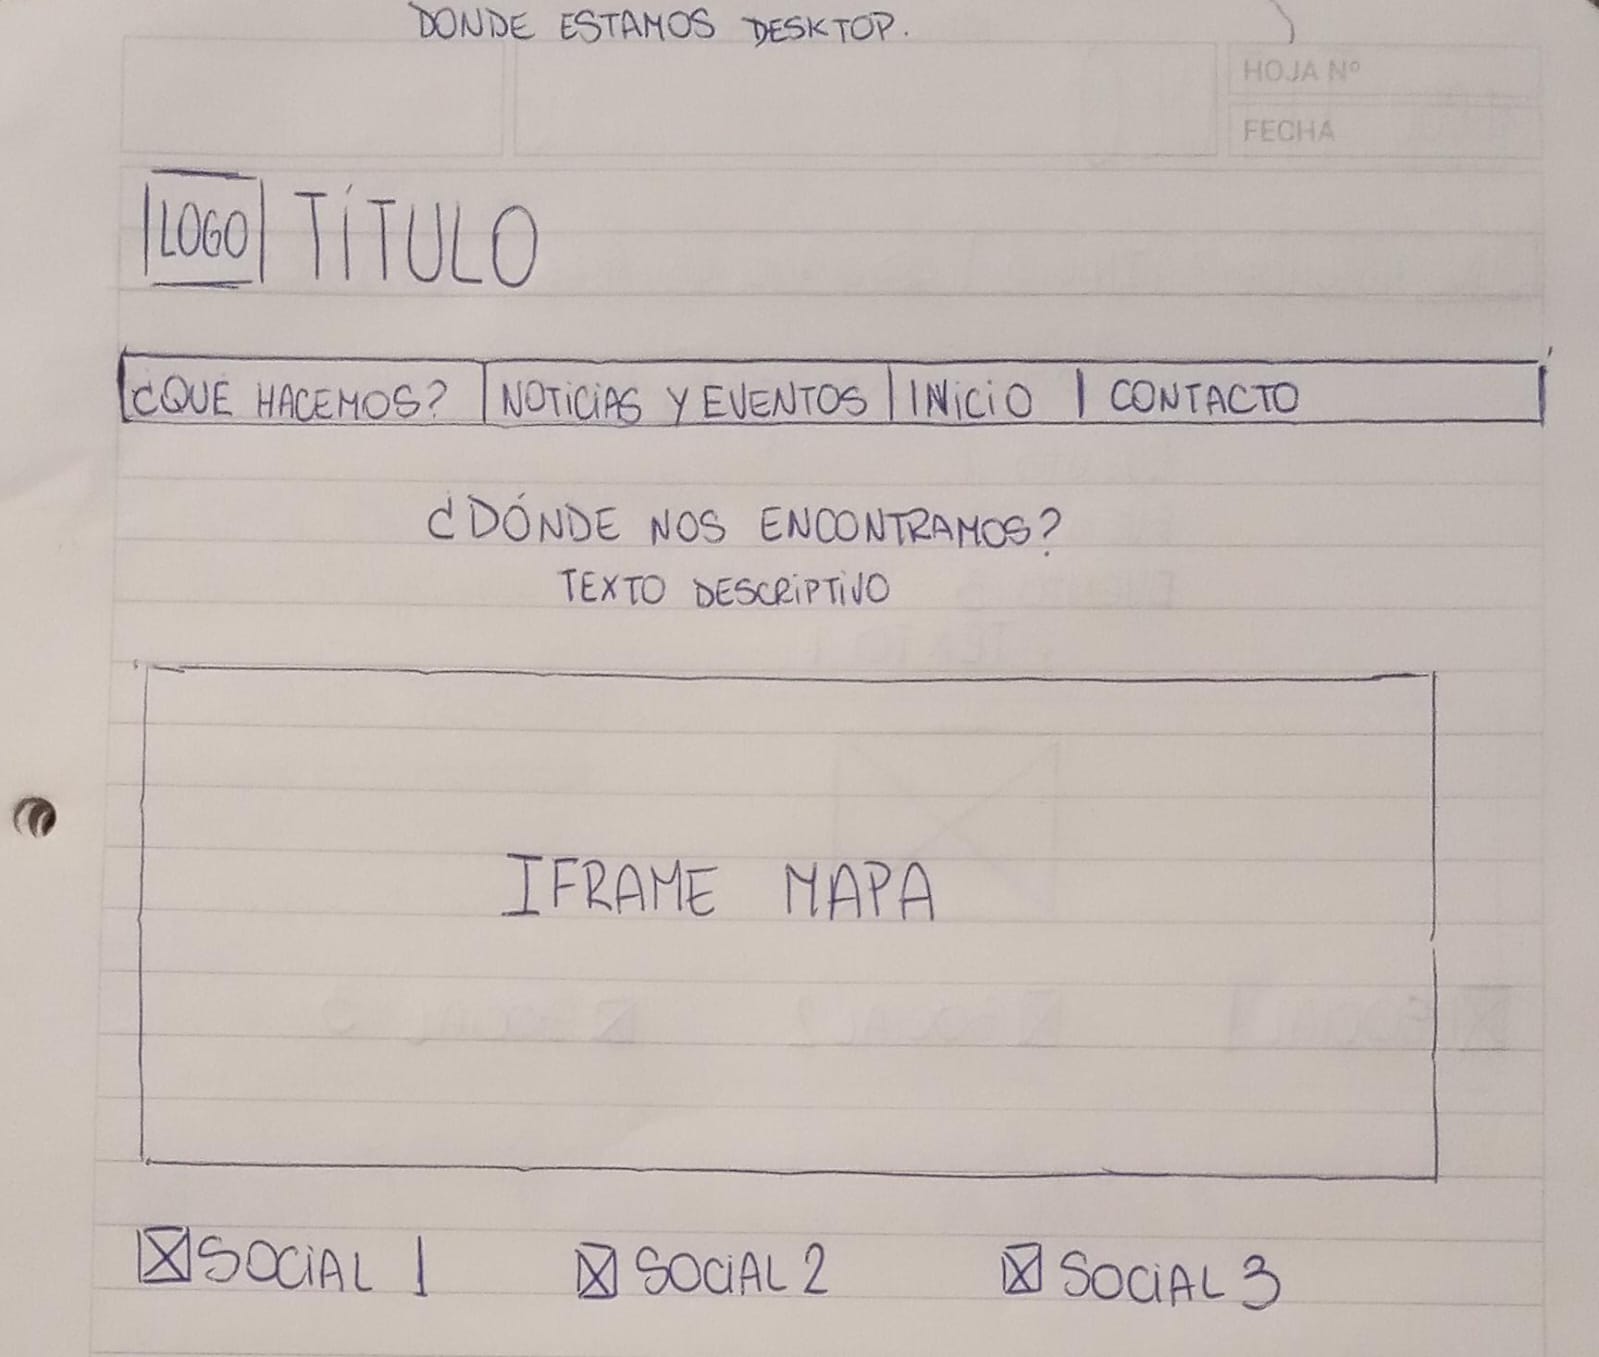 DONDE ESTAMOS DESKTOP.
HOJA Nº
FECHA
LOGO TÍTULO
¿QUE HACEMOS? NOTICIAS Y EVENTOS INICIO CONTACTO
¿DÓNDE NOS ENCONTRAMOS?
TEXTO DESCRIPTIVO
IFRAME MAPA
SOCIAL 1 SOCIAL 2 SOCIAL 3